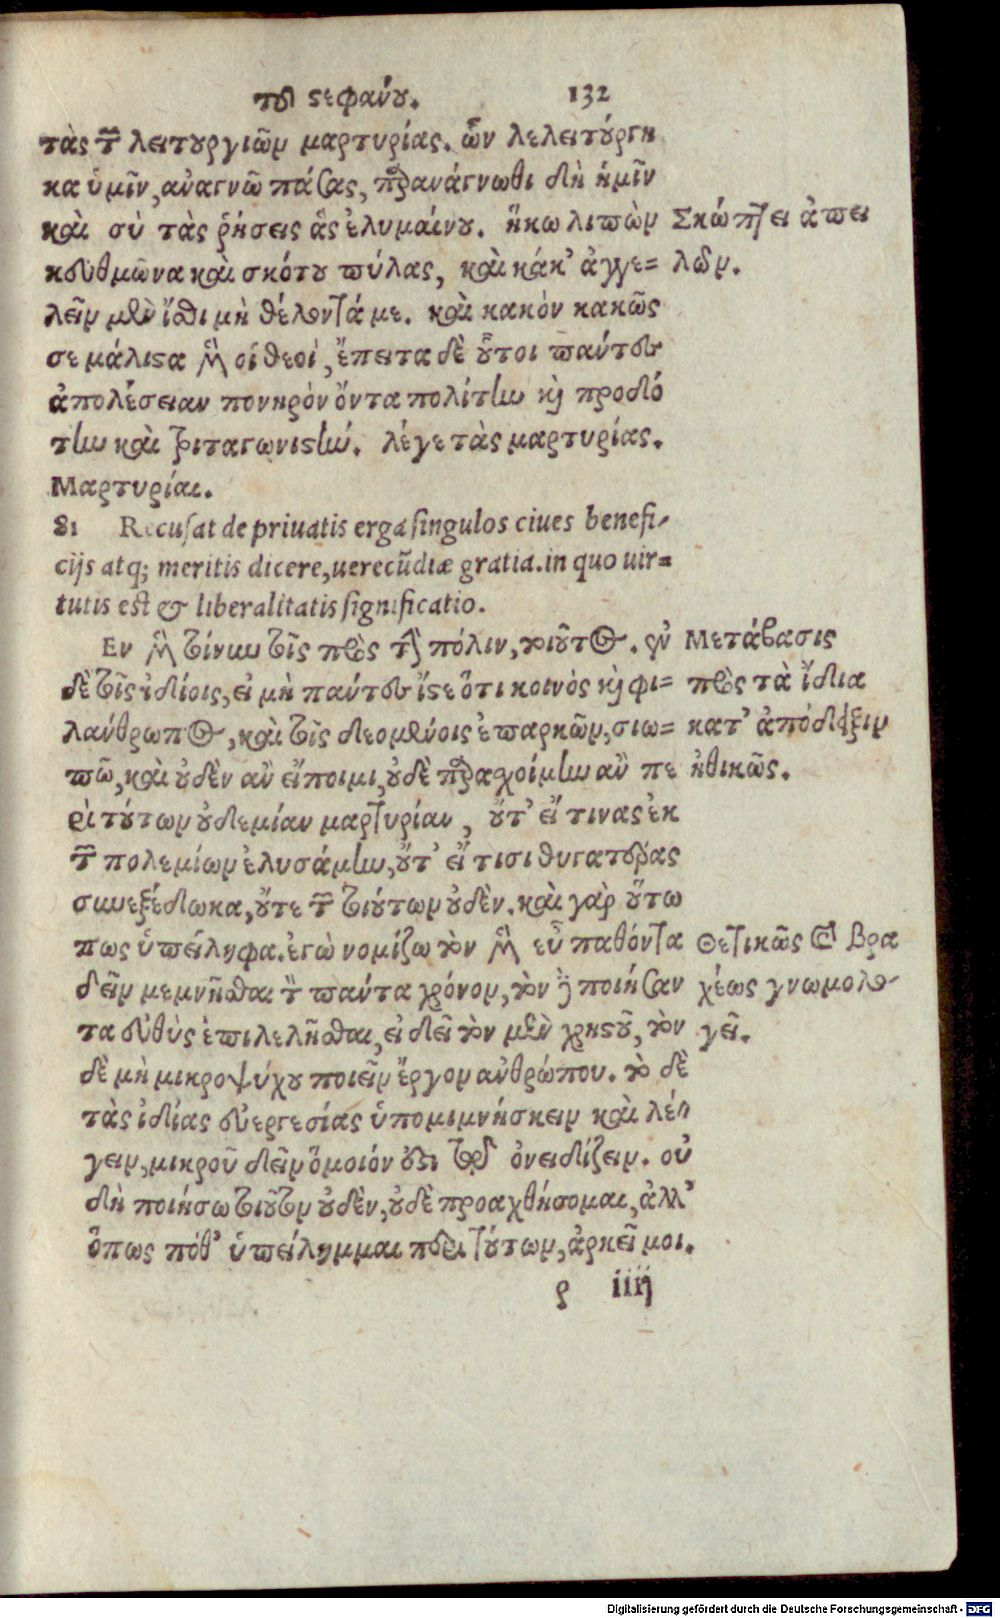 τοῦ στεφάνου. 132
τὰς τῶν λειτουργιῶν μαρτυρίας. ὧν λελειτούργη
κα ὑμῖν, ἀναγνῶ πάσας, παρανάγνωθι δὴ ἡμῖν
καὶ σὺ τὰς ῥήσεις ἃς ἐλυμαίνου. ἥκω λιπὼν
κευθμῶνα καὶ σκότου πύλας, καὶ κάκ' ἀγγε=
λεῖν μὲν ἴσθι μὴ θέλοντά με. καὶ κακὸν κακῶς
σε μάλιστα μὲν οἱ θεοὶ, ἔπειτα δὲ οὗτοι πάντες
ἀπολέσειαν πονηρὸν ὄντα πολίτην καὶ προδό
την καὶ τριταγωνιστήν. λέγε τὰς μαρτυρίας.
Μαρτυρίαι.
Σκώπτει ἀπει
λῶν.
81 Recusat de priuatis erga singulos ciues benefi-
cijs atq; meritis dicere, uerecũdiæ gratia. in quo uir=
tutis est & liberalitatis significatio.
Εν μὲν τοίνυν τοῖς πρὸς τὴν πόλιν, τοιοῦτος. ἐν
δὲ τοῖς ἰδίοις, εἰ μὴ πάντες ἴστε ὅτι κοινὸς καὶ φι=
λάνθρωπος, καὶ τοῖς δεομένοις ἐπαρκῶν, σιω=
πῶ, καὶ οὐδὲν ἂν εἴποιμι, οὐδὲ παρασχοίμην ἂν πε
ρὶ τούτων οὐδεμίαν μαρτυρίαν, οὔτ' εἴ τινας ἐκ
τῶν πολεμίων ἐλυσάμην, οὔτ' εἴ τισι θυγατέρας
συνεξέδωκα, οὔτε τῶν τοιούτων οὐδὲν. καὶ γὰρ οὕτω
πως ὑπείληφα. ἐγὼ νομίζω τὸν μὲν εὖ παθόντα
δεῖν μεμνῆσθαι τὸν πάντα χρόνον, τὸν δὲ ποιήσαν
τα εὐθὺς ἐπιλελῆσθαι, εἰ δεῖ τὸν μὲν χρηστοῦ, τὸν
δὲ μὴ μικροψύχου ποιεῖν ἔργον ἀνθρώπου. τὸ δὲ
τὰς ἰδίας εὐεργεσίας ὑπομιμνήσκειν καὶ λέ-
γειν, μικροῦ δεῖν ὅμοιόν ἐστι τῷ ὀνειδίζειν. οὐ
δὴ ποιήσω τοιοῦτον οὐδὲν, οὐδὲ προαχθήσομαι, ἀλλ'
ὅπως πόθ' ὑπείλημμαι περὶ τούτων, ἀρκεῖ μοι.
Μετάβασις
πρὸς τὰ ἴδια
κατ' ἀπόδειξιν
ἠθικῶς.
Θετικῶς καὶ βρα
χέως γνωμολο-
γεῖ.
ρ iiij
Digitalisierung gefördert durch die Deutsche Forschungsgemeinschaft - DFG